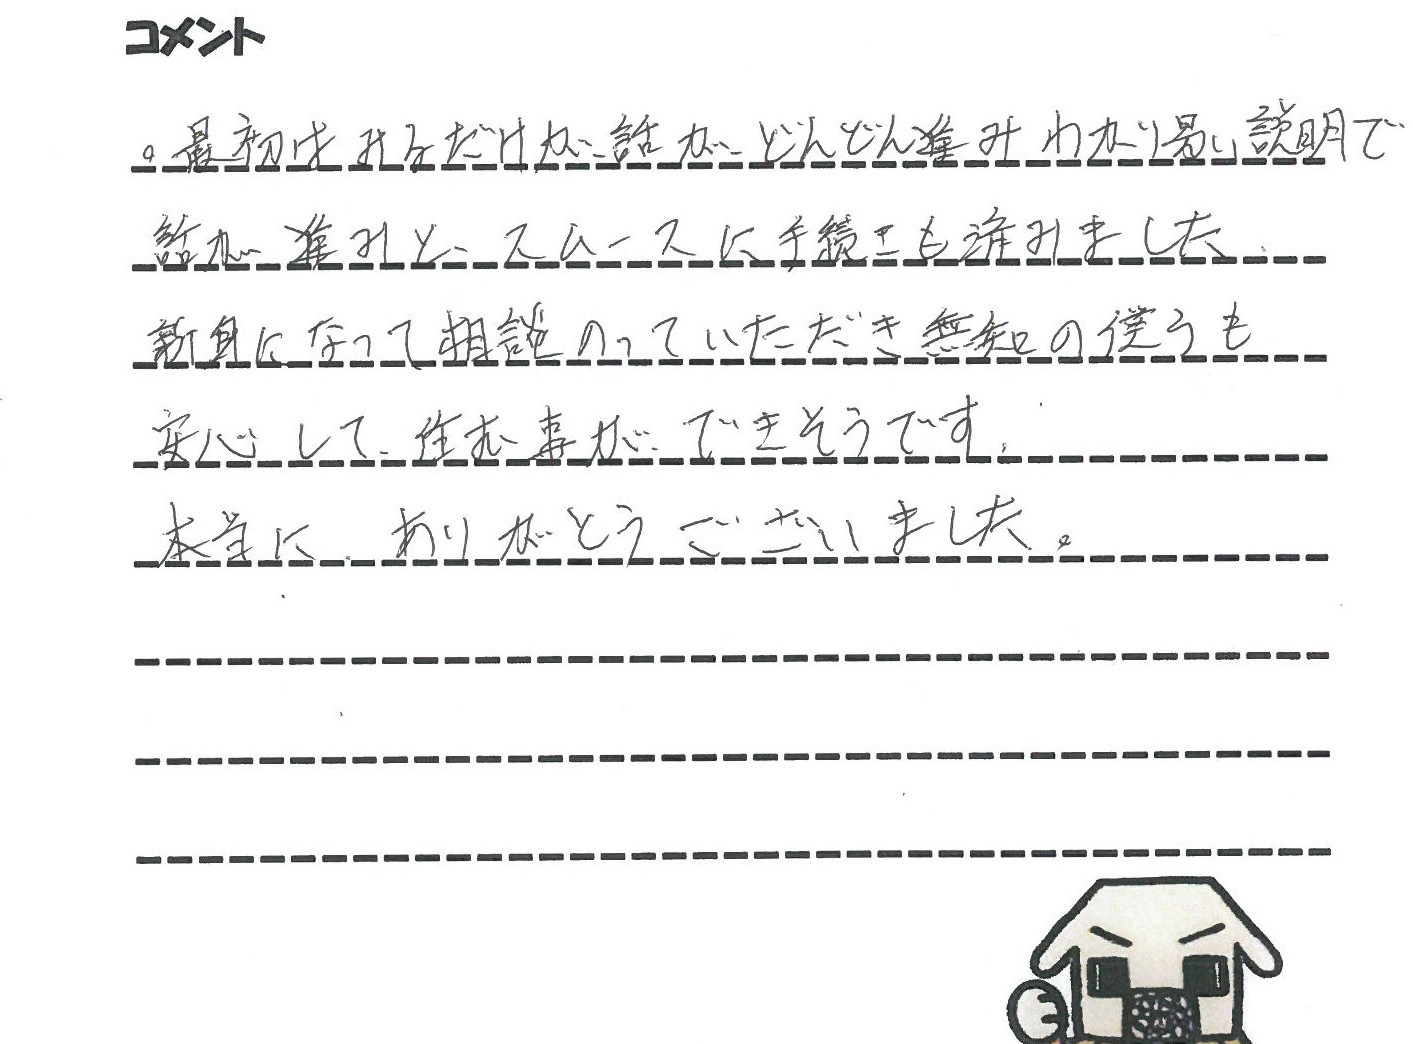 コメント
。最初はみるだけが、話が、どんどん進みわかり易い説明で
話が進みと、スムースに手続きも済みました.
新身になって相談のっていただき無知の僕らも
安心して、住む事が、できそうです.
本当に、ありがとうございました。